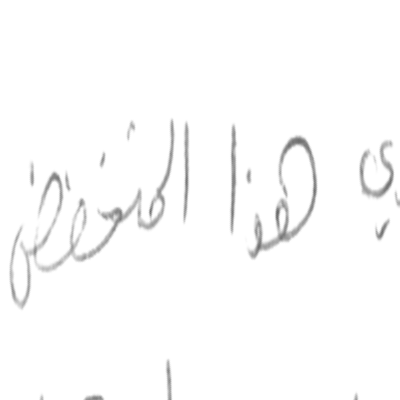 هذا المنخفض